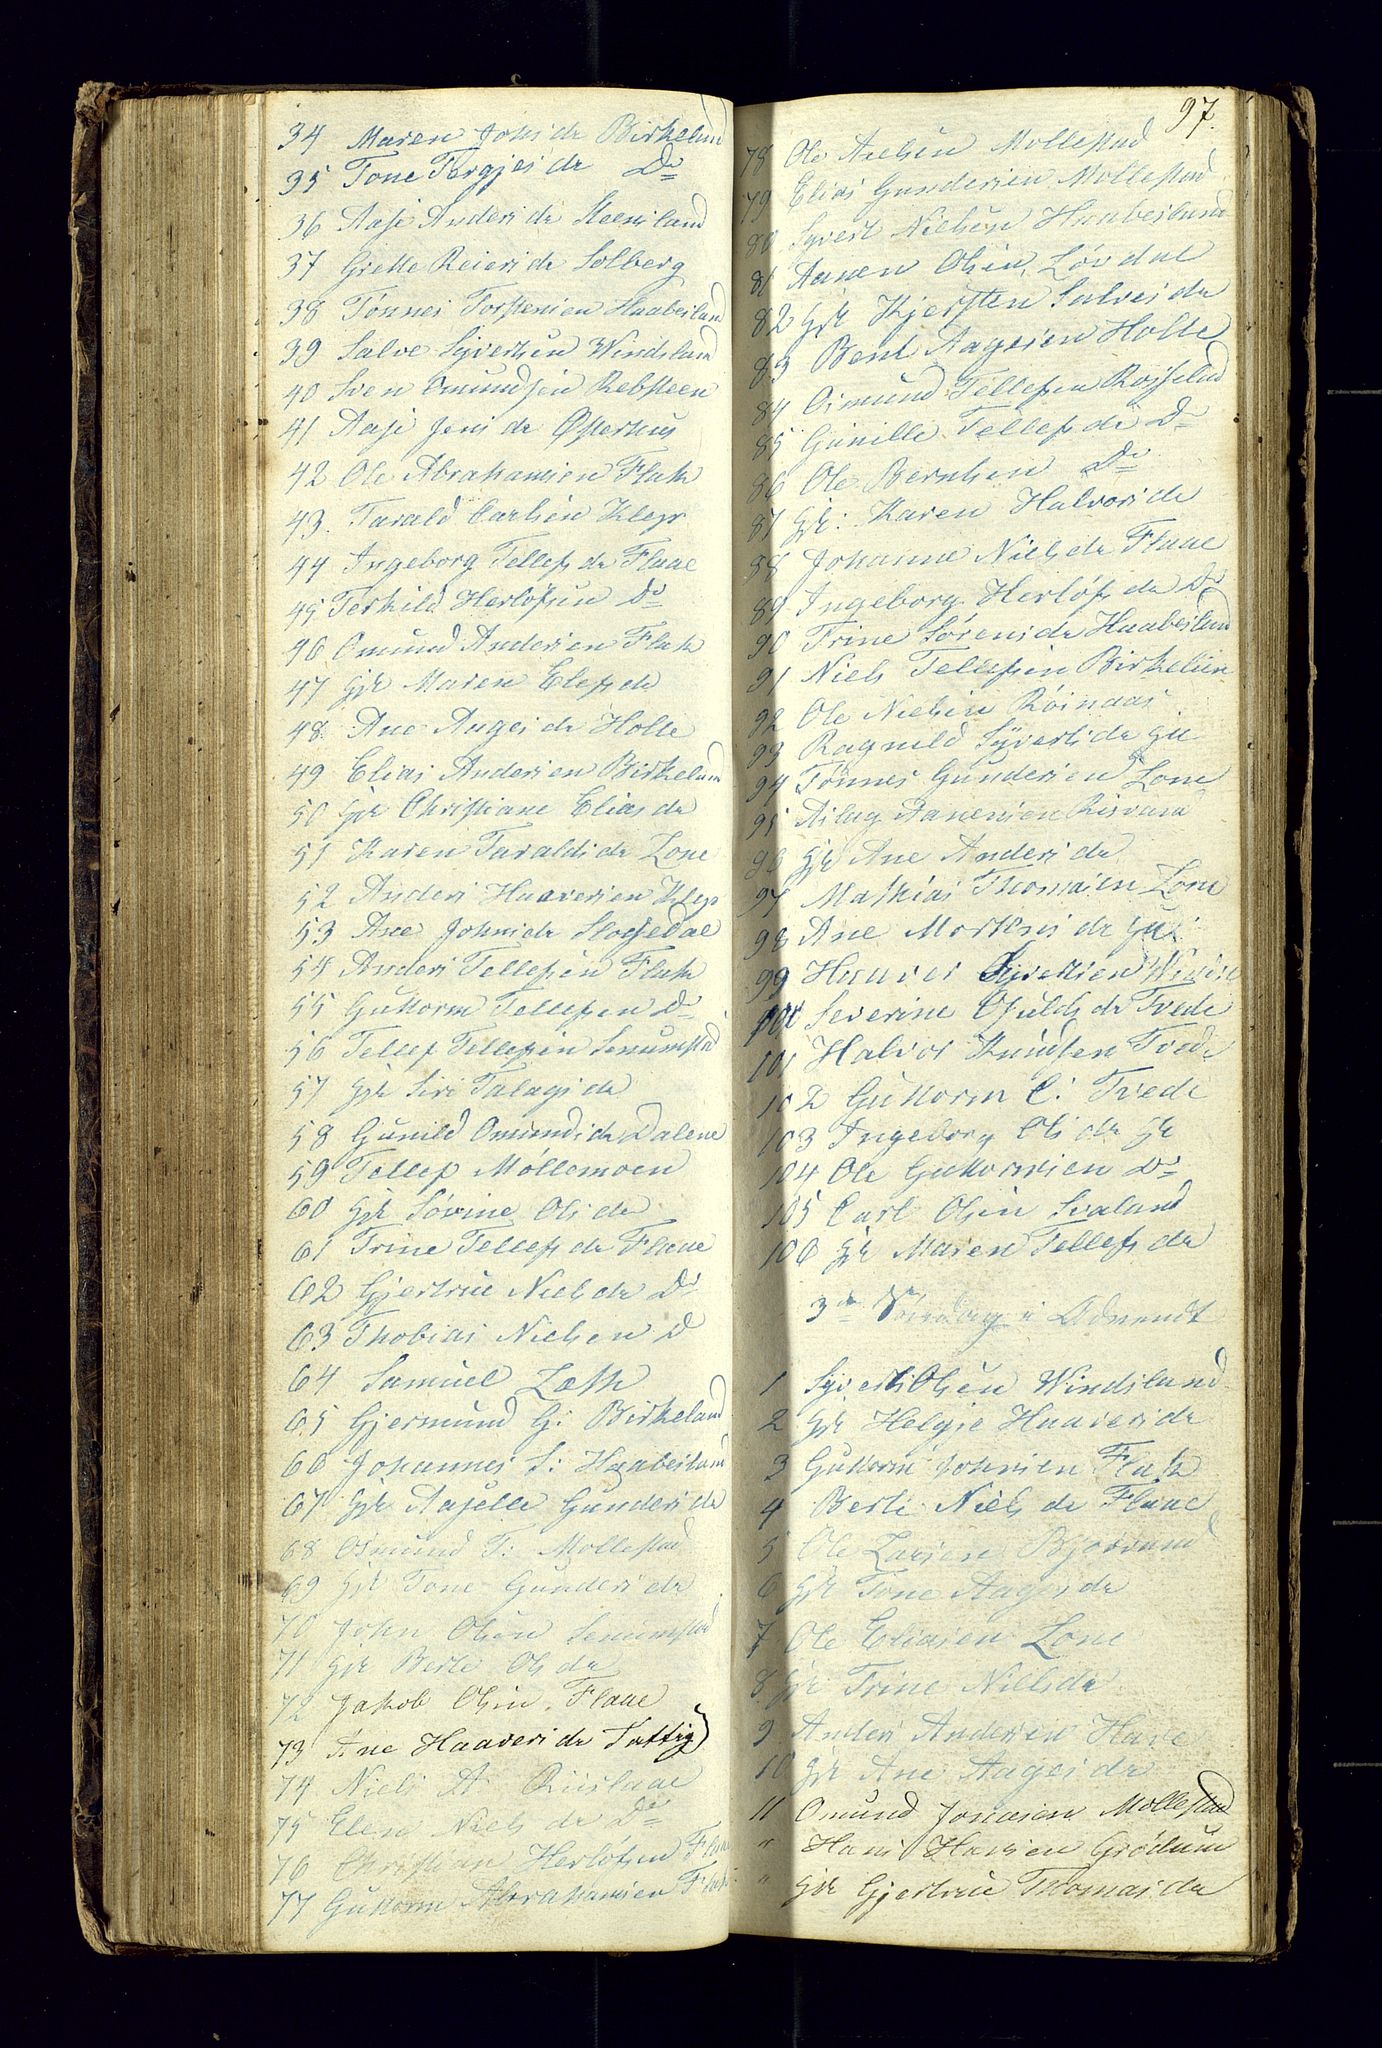 34 Maren Johs dr Birkeland
35 Tone Torgjes dr Do
36 Aase Anders dr Steensland
37 Grette Reiers dr Solberg
38 Tønnes Torstensen Haabesland
39 Salve Syvertsen Windsland
40 Sven Omundsen Rebsteen
41 Aase Jens dr Østerhus
42 Ole Abrahamsen Flak
43. Tarald Carlsen Klep
44 Ingeborg Tellefs dr Flaae
45 Terkild Herløfsen Do
46 Omund Andersen Flak
47 Gjk Maren Elefs dr
48. Ane Aages dr Holle
49 Elias Andersen Birkeland
50 Gjk Christiane Elias dr
51 Karen Taralds dr Lone
52 Anders Haaversen Klep
53 Ane Johns dr
54 Anders Tellefsen Flak
55 Guttorm Tellefsen Do
56 Tellef Tellefsen Senumstad
57 Gjk Siri Talags dr
58 Gunild Omunds dr Dalene
59 Tellef Møllemoen
60 Gjk Sørine Ols dr
61 Trine Tellefs dr Flaae
62 Gjertrue Niels dr Do
63 Thobias Nielsen D
64 Samuel
65 Gjermund G: Birkeland
66 Johannes S: Haabesland
67 Gjk Aaselle Gunders dr
68 Osmund T: Mollestad
69 Gjk Tone Gunders dr
70 John Olsen Senumstad
71 Gjk Berte Ols dr
72 Jakob Olsen. Flaae
73 Ane Haavers dr
74 Niels A. Riislaae
75 Elen Niels dr Do
76 Christian Herløfsen Flaae
77 Guttorm Abrahamsen
97.
78 Ole Mollestad
79 Elias Gundersen Mollestad
80 Syvert Nielsen Haabesland
81 Aanen Olsen, Løvdal
82 Gjk Kjersten Salves dr
83 Bent Aagesen Holle
84 Osmund Tellefsen
85 Gunille Tellefs dr Do
86 Ole Berntsen Do
87 Gjk: Karen Halvors dr
88 Johanne Niels dr Flaae
89 Ingeborg Herløfs dr Do
90 Trine Sørens dr Haabesland
91 Niels Tellefsen
92 Ole Nielsen Røinaas
93 Ragnild Syverts dr
94 Tønnes Gundersen Lone
95 Aslag Aanensen Risvand
96 Gjk Ane Anders dr
97 Mathias Thomasen Lone
98 Ane Mortens dr
99 Haaver Syvertsen
100 Severine dr Tvede
101 Halvor Knudsen Tvede
102 Guttorm C: Tvede
103 Ingeborg Ols dr Gk
104 Ole Guttormsen Do
105 Carl Olsen Svaland
106 Gjk Maren Tellefs dr
3de Søndag i Advendt
1 Syvert Olsen Windsland
2 Gjk Helgje Haavers dr
3 Guttorm Johnsen Flak
4 Berte Niels dr Flaae
5 Ole Larsen Bjorvand
6 Gjk Tone Aages dr
7 Ole Eliasen Lone
8. Gjk Trine Niels dr
9 Anders Andersen Have
10 Gjk Ane Aages dr
11 Omund Jonasen Mollestad
" Hans Hansen Grødum
" Gjk Gjertrue Thomas dr